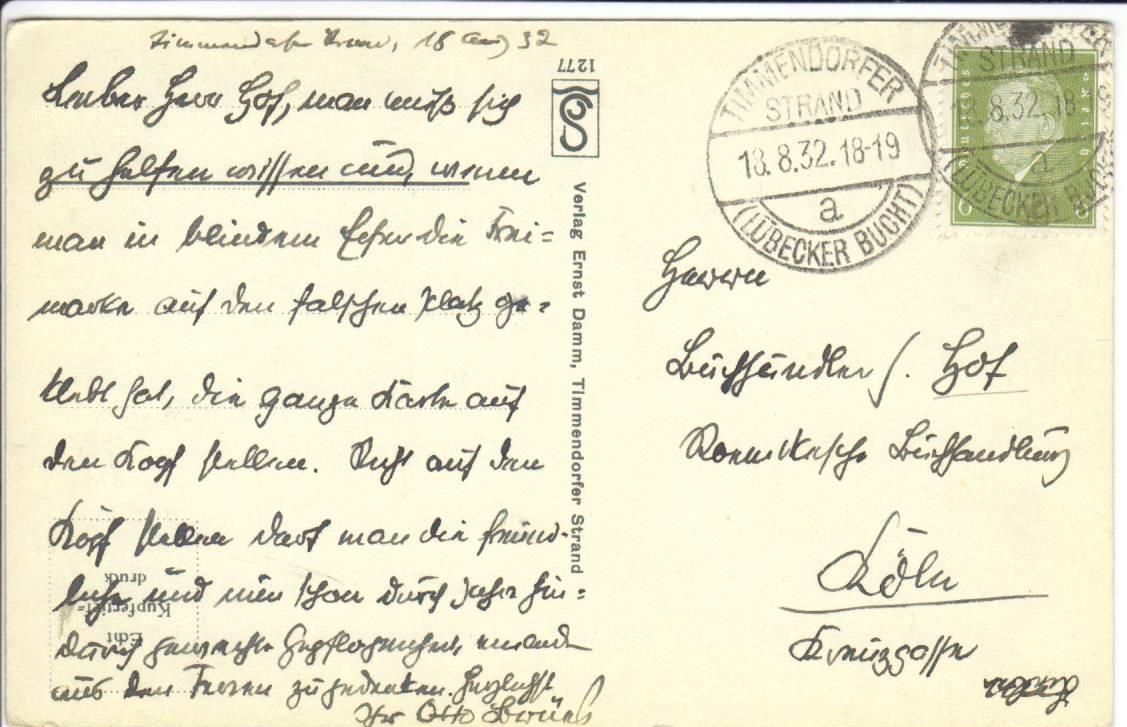 Timmendorfer Strand, 18 Aug 32
Lieber Herr Hof, man muß sich
zu helfen wissen und, wenn
man in blindem Eifer die Frei=
marke auf den falschen Platz ge=
klebt hat, die ganze Karte auf
den Kopf stellen. Nicht auf den
Kopf stellen darf man die freund-
liche und nun schon durch Jahre hin=
durch gepflogenheit, einander
aus den Ferien zu gedenken. Herzlichst
Ihr Otto Brües
1277
Verlag Ernst Damm, Timmendorfer Strand
Echt
Kupfertief=
druck
TIMMENDORFER
STRAND
18.8.32.18-19
a
(LÜBECKER BUCHT)
TIMMENDORFER
STRAND
18.8.32.18-
a
(LÜBECKER BUCHT)
6
Herrn
Buchhändler J. Hof
Buchhandlung
Köln
Kreuzgasse